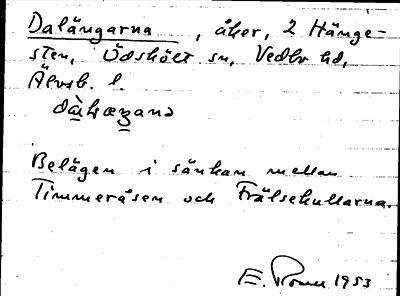 Dalängarna, åker, 2 Hänge-
sten, Ödskölt sn, Vedbo hd,
Älvsb. l.
Belägen i sänkan mellan
Timmeråsen och Frälsekullarna.
E. 1953